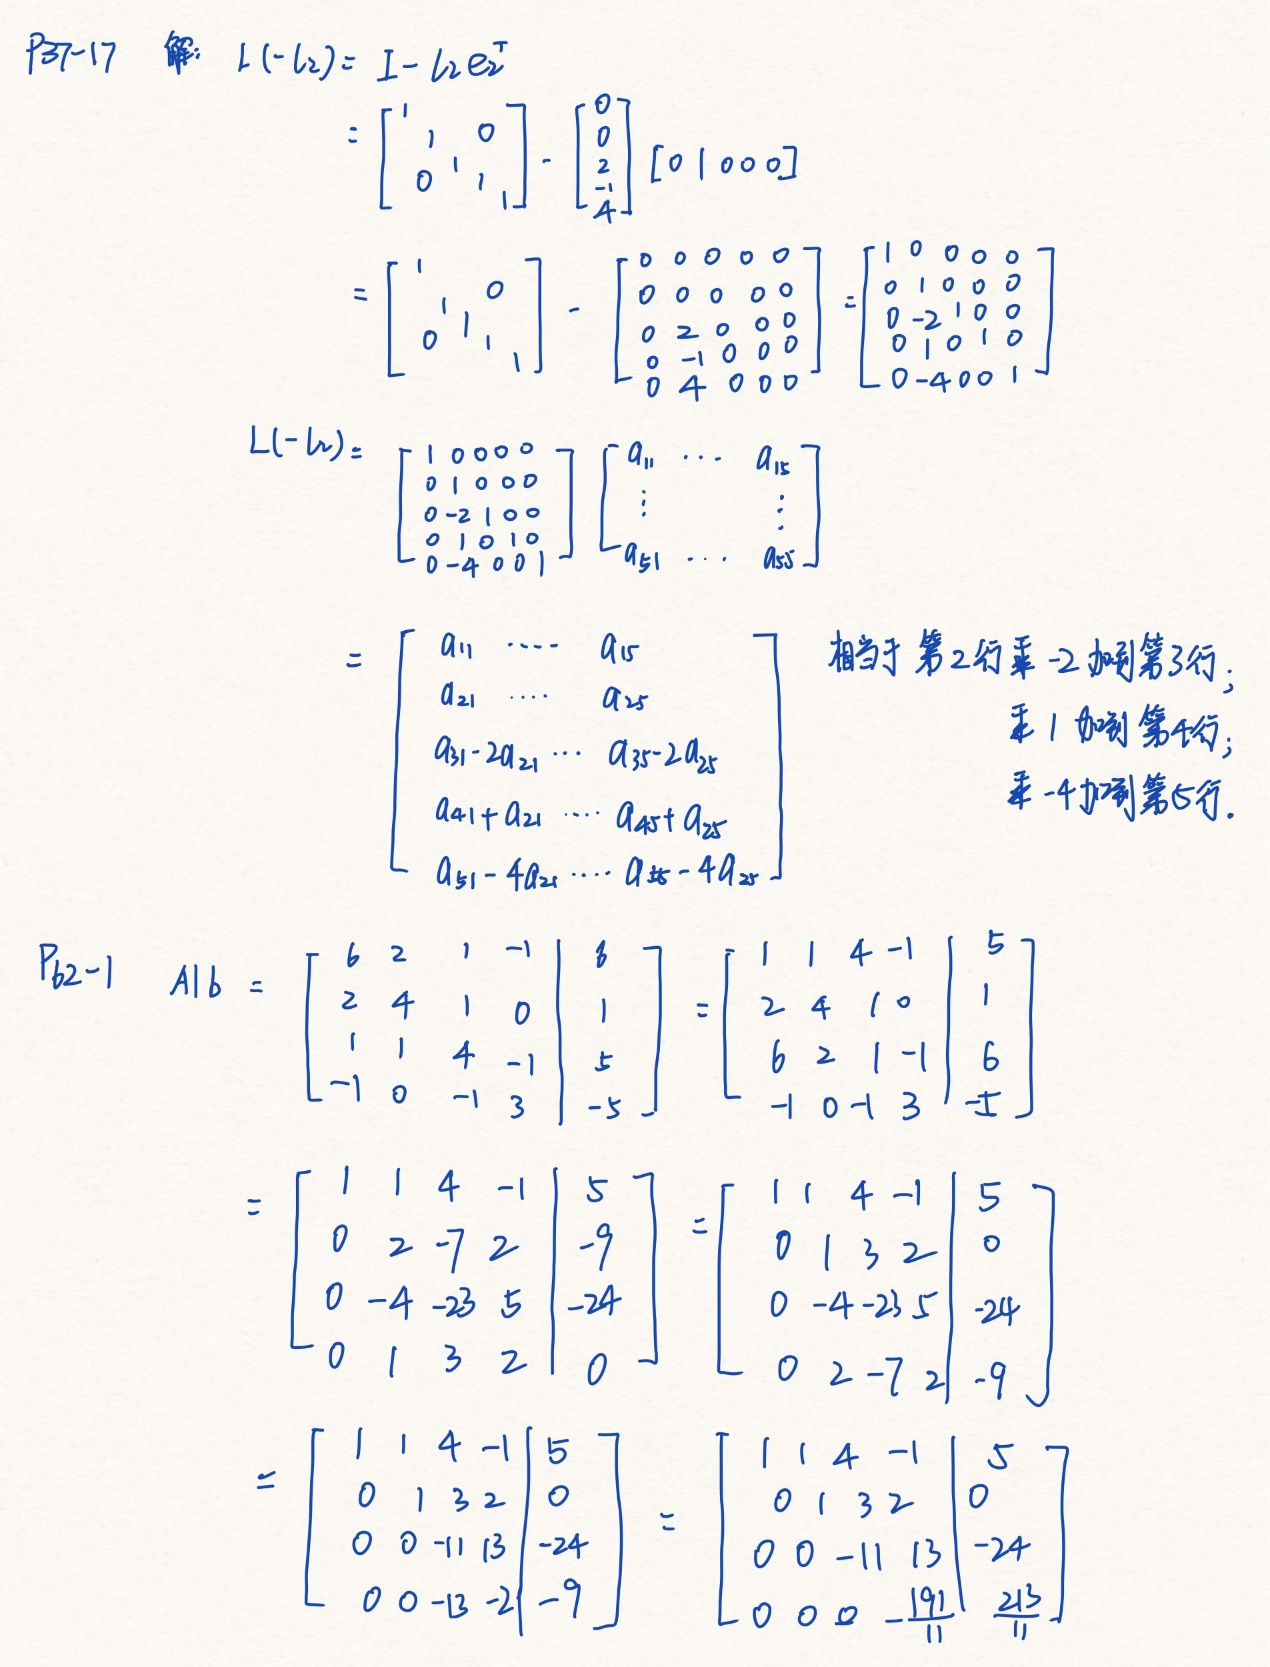 P37-17 解: L(-l₂) = I - l₂e₂ᵀ
= [1 1 0 0 1 1 1] - [0 0 2 -1 4] [0 1 0 0 0]
= [1 0 1 0 1 1 1] - [0 0 0 0 0
0 0 0 0 0
0 2 0 0 0
0 -1 0 0 0
0 4 0 0 0] = [1 0 0 0 0
0 1 0 0 0
0 -2 1 0 0
0 1 0 1 0
0 -4 0 0 1]
L(-l₂) = [1 0 0 0 0
0 1 0 0 0
0 -2 1 0 0
0 1 0 1 0
0 -4 0 0 1] [a₁₁ ⋯ a₁₅
⋮ ⋮
a₅₁ ⋯ a₅₅]
= [a₁₁ ⋯⋅ a₁₅
a₂₁ ⋯⋅ a₂₅
a₃₁-2a₂₁ ⋯ a₃₅-2a₂₅
a₄₁+a₂₁ ⋯⋅ a₄₅+a₂₅
a₅₁-4a₂₁ ⋯⋅ a₅₅-4a₂₅]
相当于 第2行乘 -2 加到第3行;
乘 1 加到 第4行;
乘 -4 加到第5行.
P62-1 A|b = [6 2 1 -1 | 6
2 4 1 0 | 1
1 1 4 -1 | 5
-1 0 -1 3 | -5] = [1 1 4 -1 | 5
2 4 1 0 | 1
6 2 1 -1 | 6
-1 0 -1 3 | -5]
= [1 1 4 -1 | 5
0 2 -7 2 | -9
0 -4 -23 5 | -24
0 1 3 2 | 0] = [1 1 4 -1 | 5
0 1 3 2 | 0
0 -4 -23 5 | -24
0 2 -7 2 | -9]
= [1 1 4 -1 | 5
0 1 3 2 | 0
0 0 -11 13 | -24
0 0 -13 -2 | -9] = [1 1 4 -1 | 5
0 1 3 2 | 0
0 0 -11 13 | -24
0 0 0 -191/11 | 213/11]